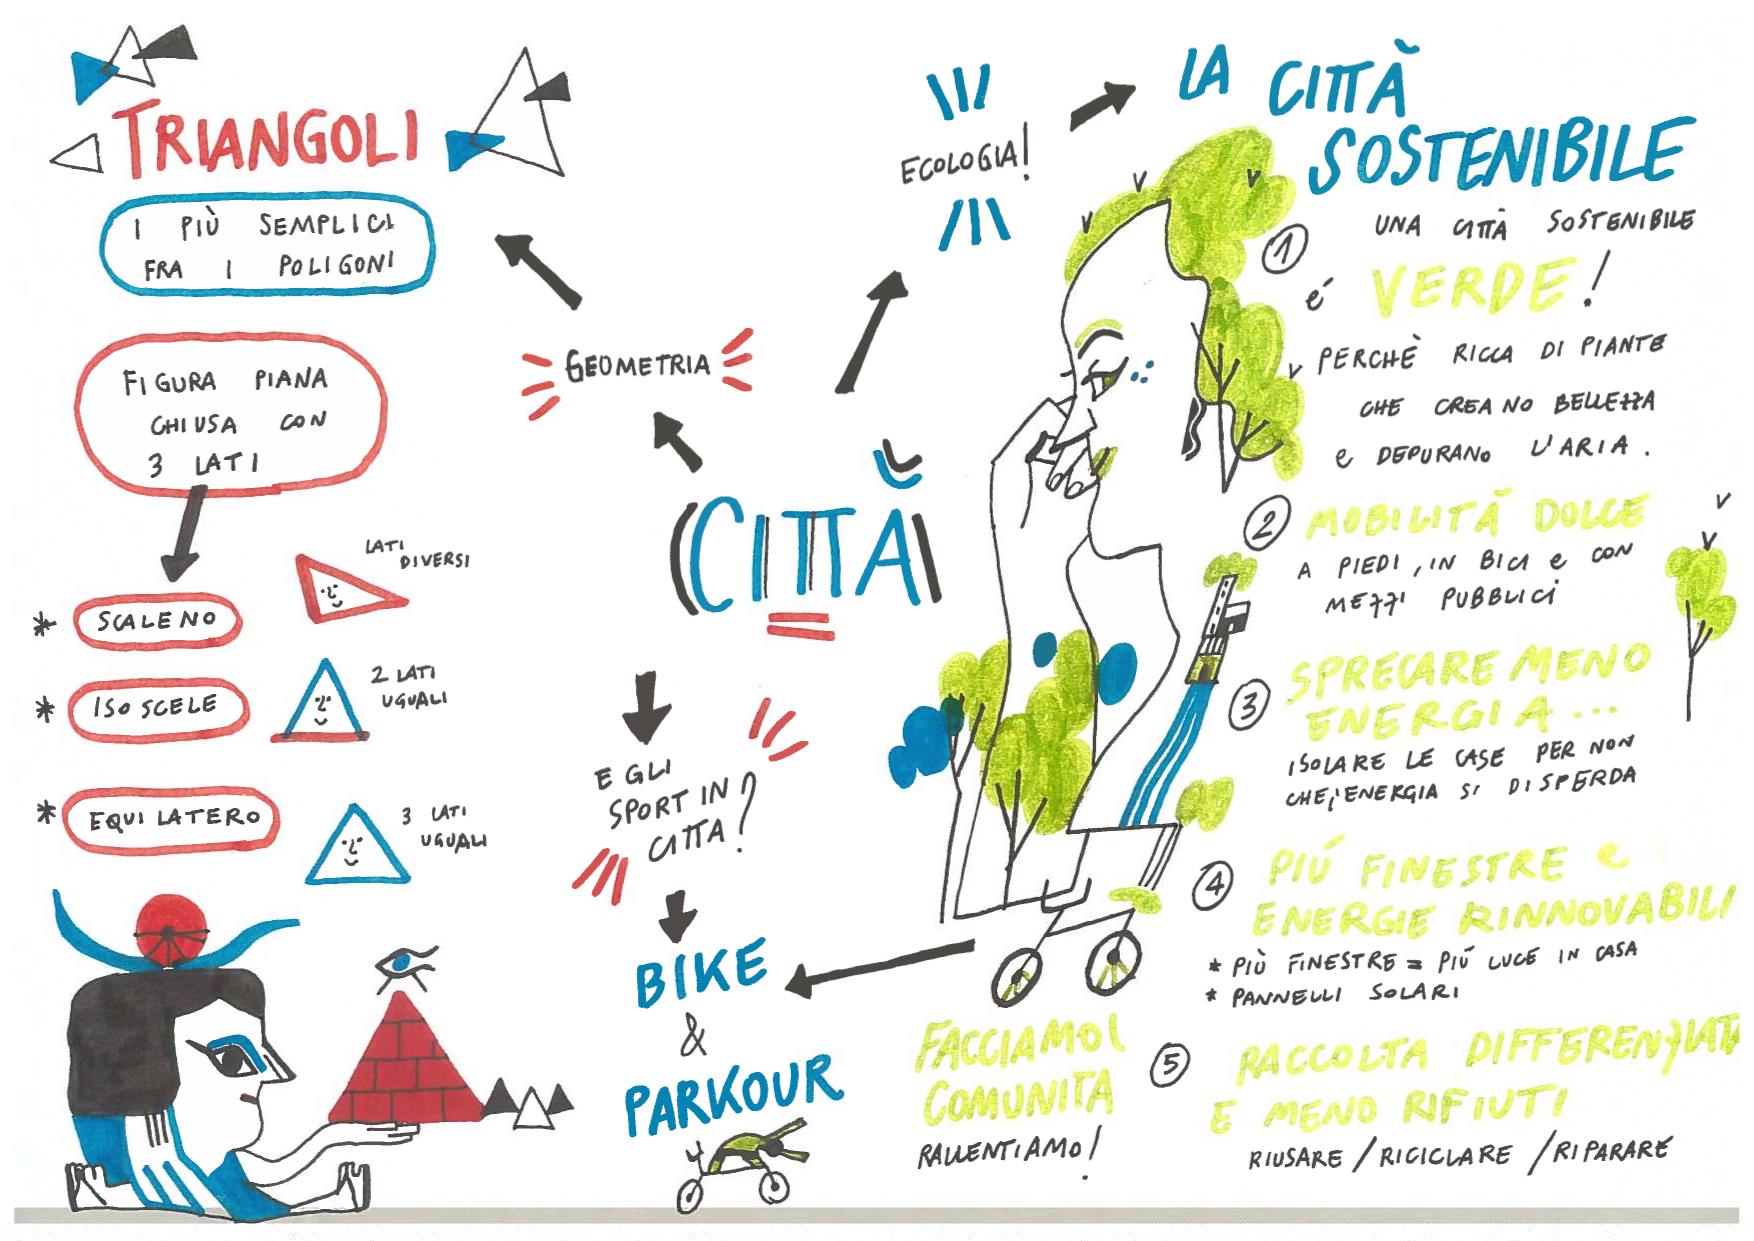 TRIANGOLI
I PIÙ SEMPLICI
FRA I POLIGONI
FIGURA PIANA
CHIUSA CON
3 LATI
* SCALENO
LATI
DIVERSI
* ISOSCELE
2 LATI
UGUALI
* EQUILATERO
3 LATI
UGUALI
GEOMETRIA
CITTÀ
E GLI
SPORT IN
CITTA?
BIKE
&
PARKOUR
ECOLOGIA!
LA CITTÀ
SOSTENIBILE
1
UNA CITTÀ SOSTENIBILE
é VERDE!
PERCHÈ RICCA DI PIANTE
CHE CREANO BELLEZZA
e DEPURANO L'ARIA.
2 MOBILITÁ DOLCE
A PIEDI, IN BICI e CON
MEZZI PUBBLICI
3 SPRECARE MENO
ENERGIA...
ISOLARE LE CASE PER NON
CHE L'ENERGIA SI DISPERDA
4 PIÚ FINESTRE e
ENERGIE RINNOVABILI
* PIÙ FINESTRE = PIÚ LUCE IN CASA
* PANNELLI SOLARI
5 RACCOLTA DIFFERENZIATA
E MENO RIFIUTI
RIUSARE / RICICLARE / RIPARARE
FACCIAMO
COMUNITA
RALLENTIAMO!